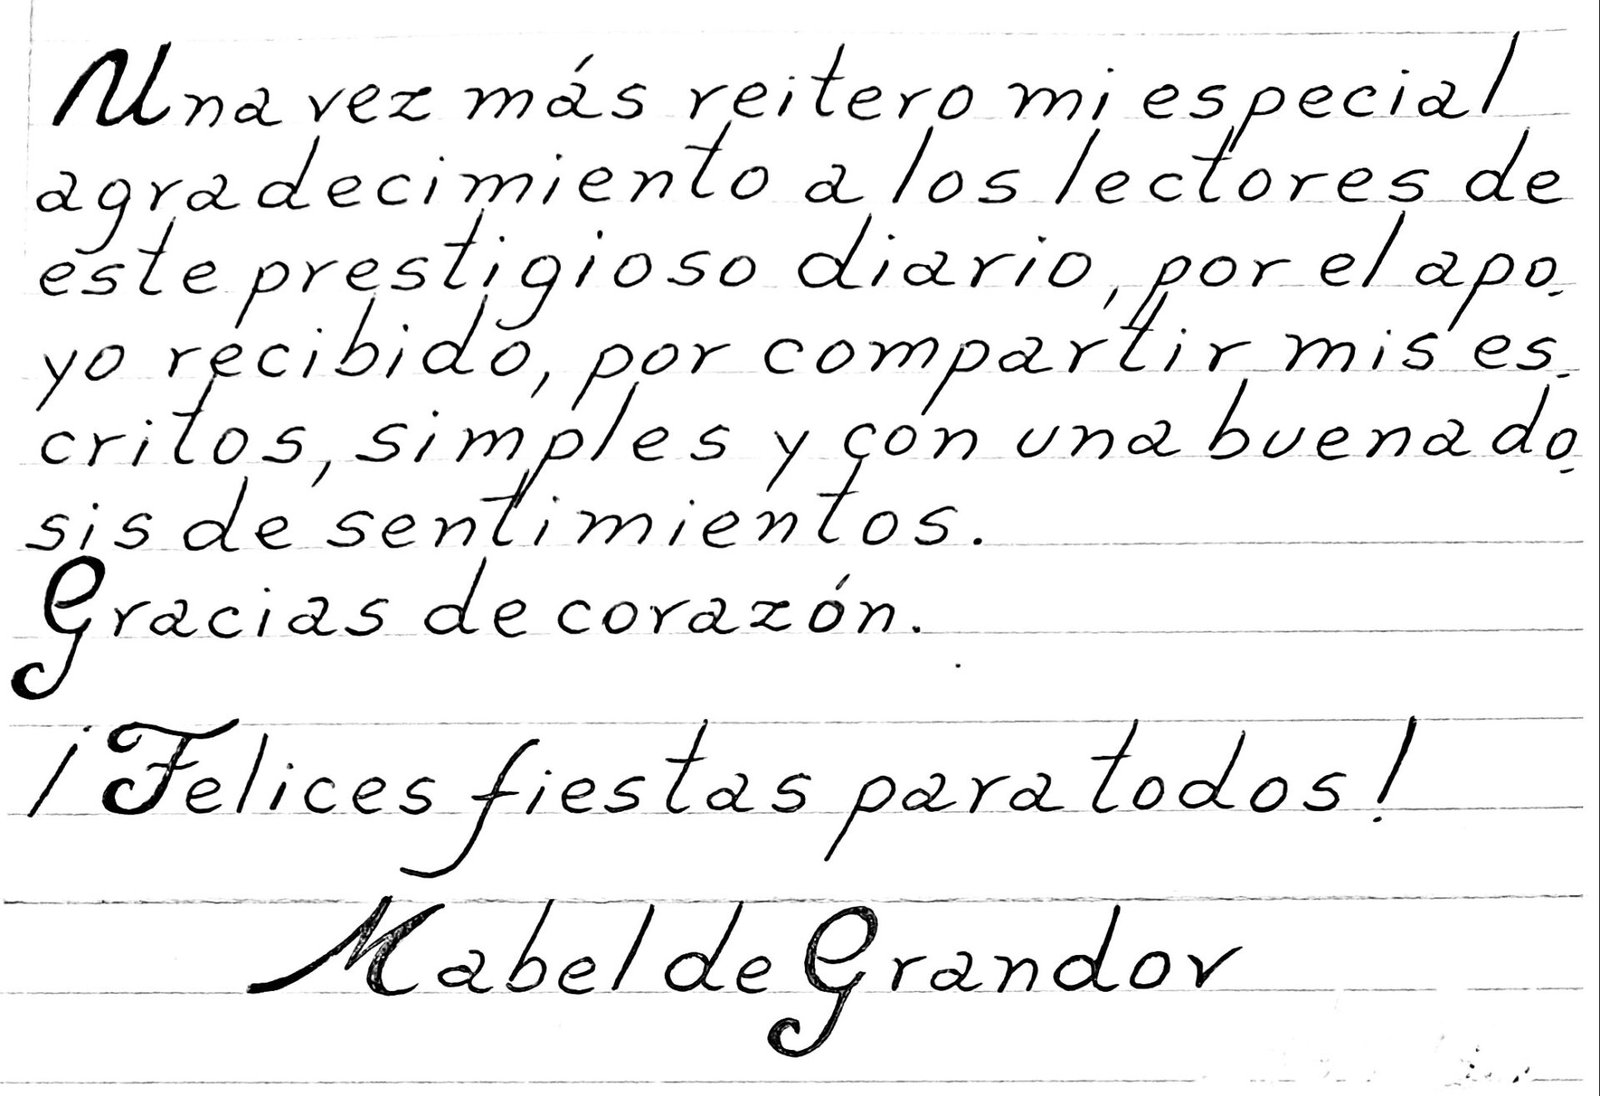 Una vez más reitero mi especial
agradecimiento a los lectores de
este prestigioso diario, por el apo-
yo recibido, por compartir mis es-
critos, simples y con una buena do-
sis de sentimientos.
Gracias de corazón.
¡Felices fiestas para todos!
Mabel de Grandov